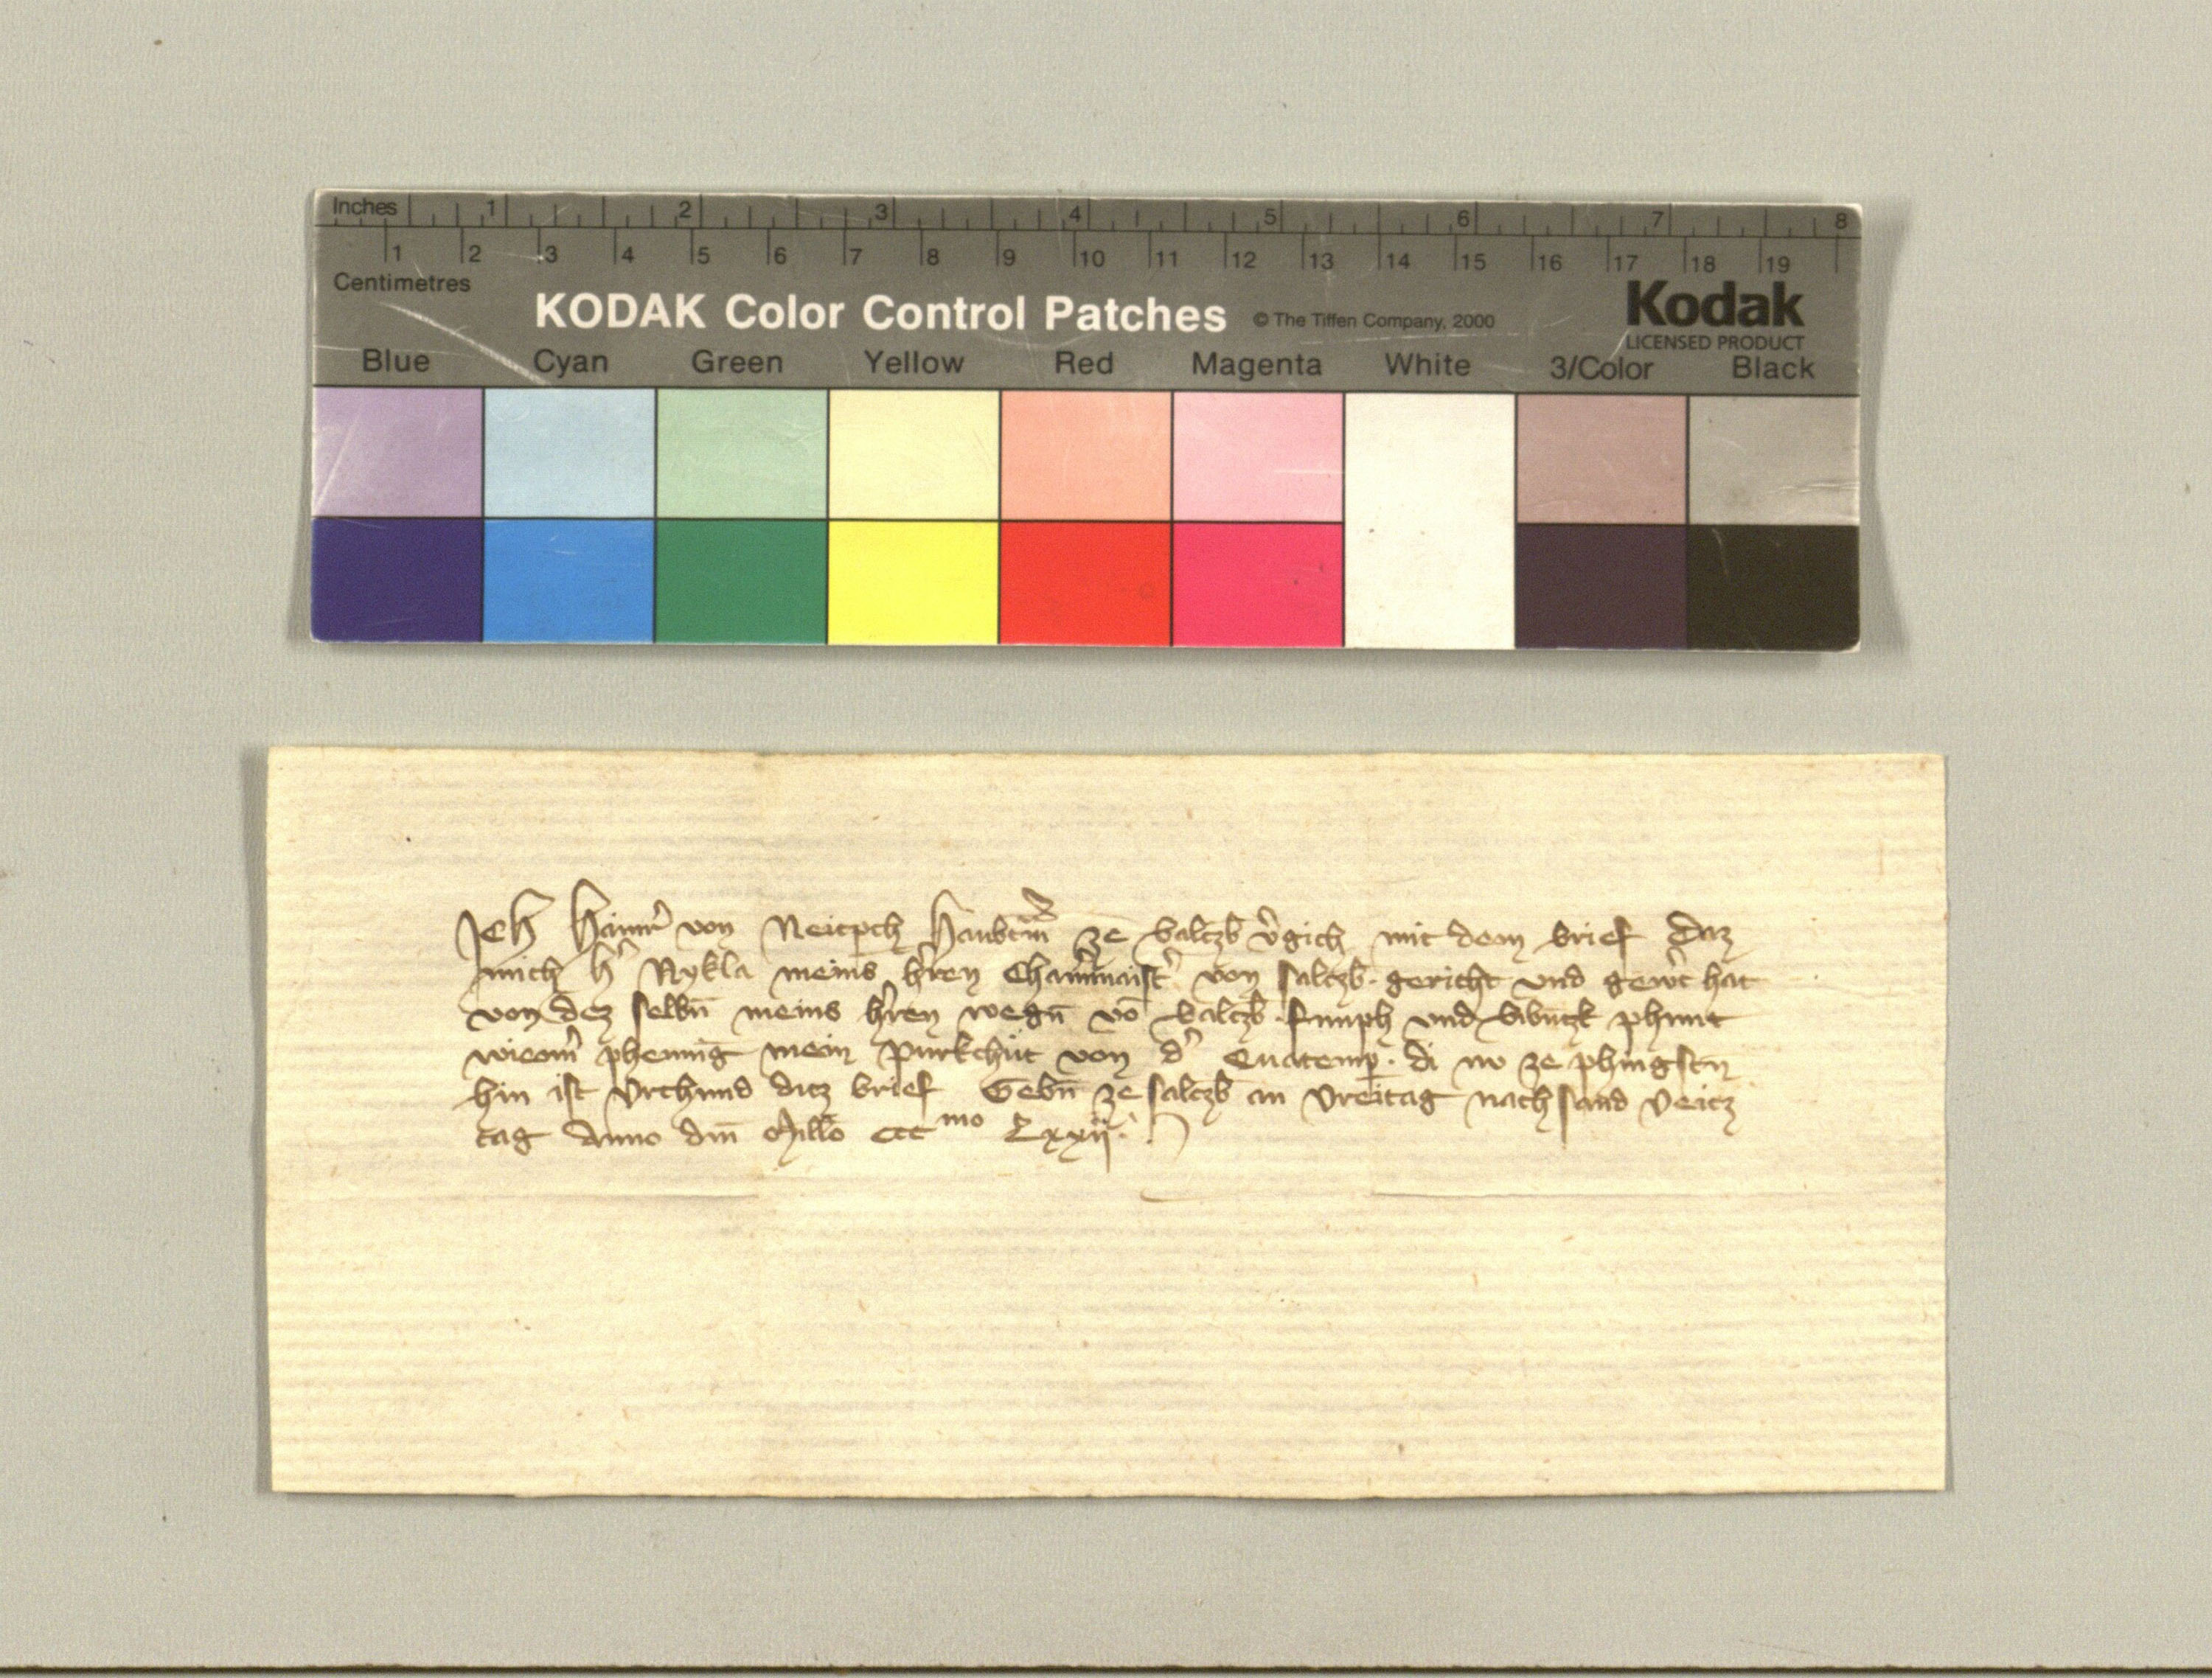 Inches 1 2 3 4 5 6 7 8
1 2 3 4 5 6 7 8 9 10 11 12 13 14 15 16 17 18 19
Centimetres
KODAK Color Control Patches © The Tiffen Company, 2000 Kodak
LICENSED PRODUCT
Blue Cyan Green Yellow Red Magenta White 3/Color Black
Ich Hainr̄ von Neitpch Haubtm̄ ze Salczb v̄gich mit dem brief Daz
mich h̄ Nykla meins h̄ren Cham̄maist̄ von salczb. gericht und gew̄t hat
von dez selbn̄ meins h̄ren wegn̄ vō Salczb. fumph und Sibn̄czk phunt
wien̄ phennig mein purkchūt von d̄ Quatemp̄. di nv ze phingstn̄
hin ist Vrchund dicz brief Gebn̄ ze salczb an Vreitag nach sand Veicz
tag Anno dm̄ Mill̄o ccc mo Lxxii.